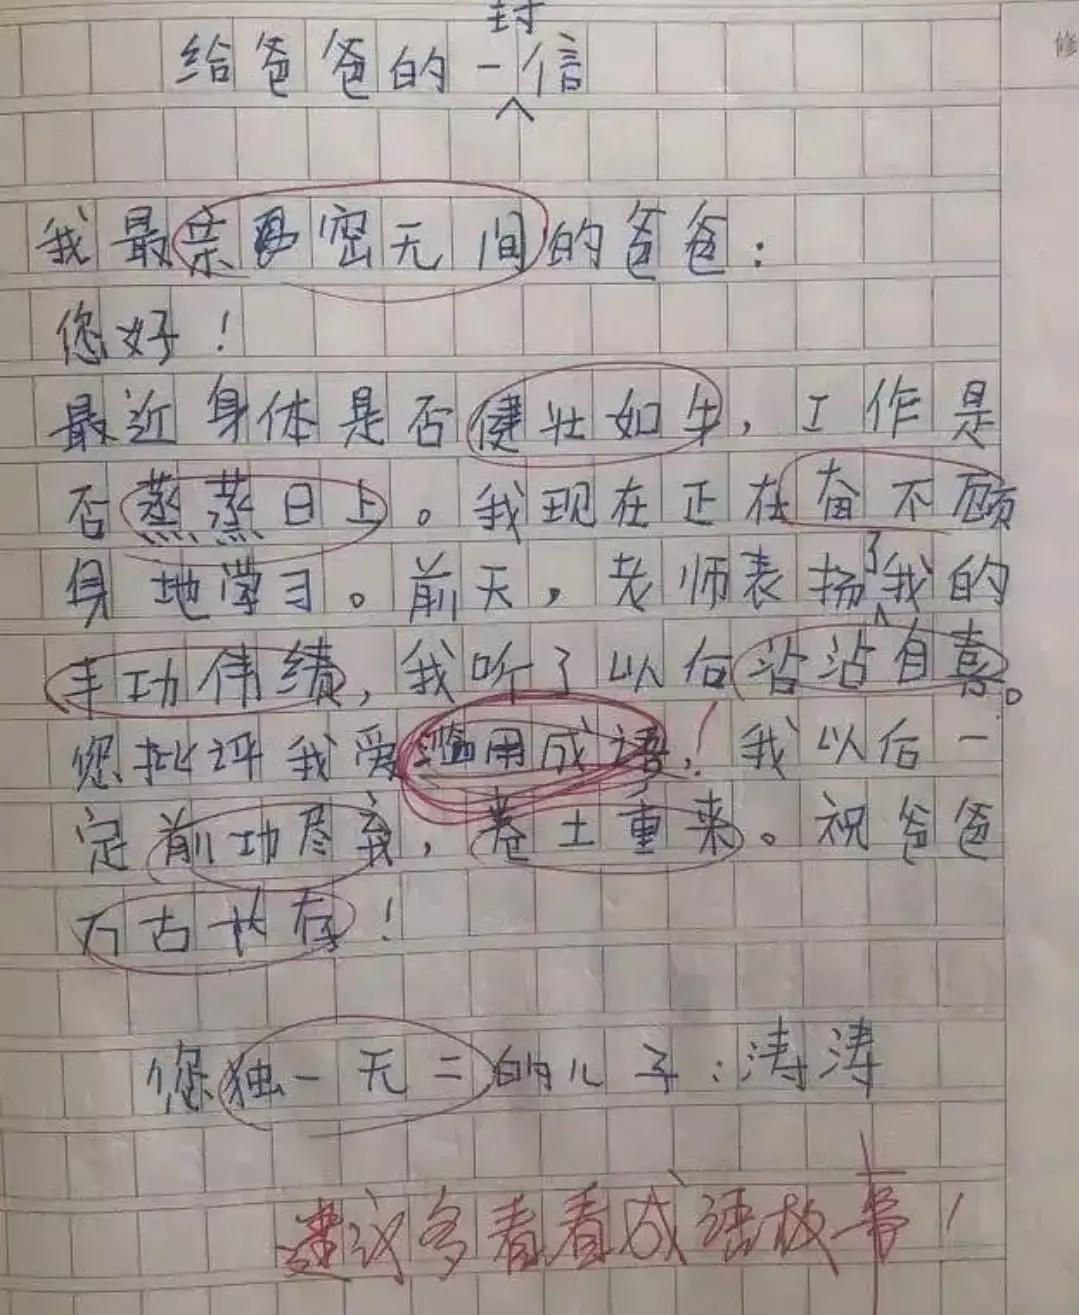 给爸爸的一封信
修
我最亲密无间的爸爸：
您好！
最近身体是否健壮如牛，工作是
否蒸蒸日上。我现在正在奋不顾
身地学习。前天，老师表扬了我的
丰功伟绩，我听了以后沾沾自喜。
您批评我爱滥用成语，我以后一
定前功尽弃，卷土重来。祝爸爸
万古长存！
您独一无二的儿子：涛涛
建议多看看成语故事！